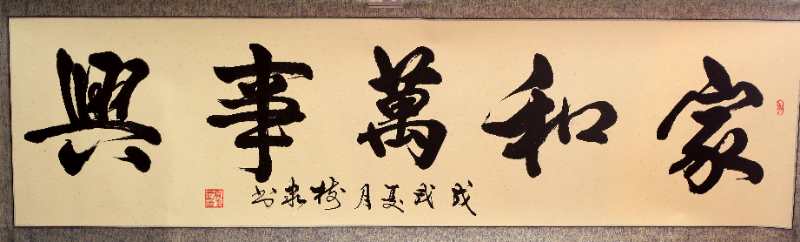 家和萬事興
戊戌夏月书